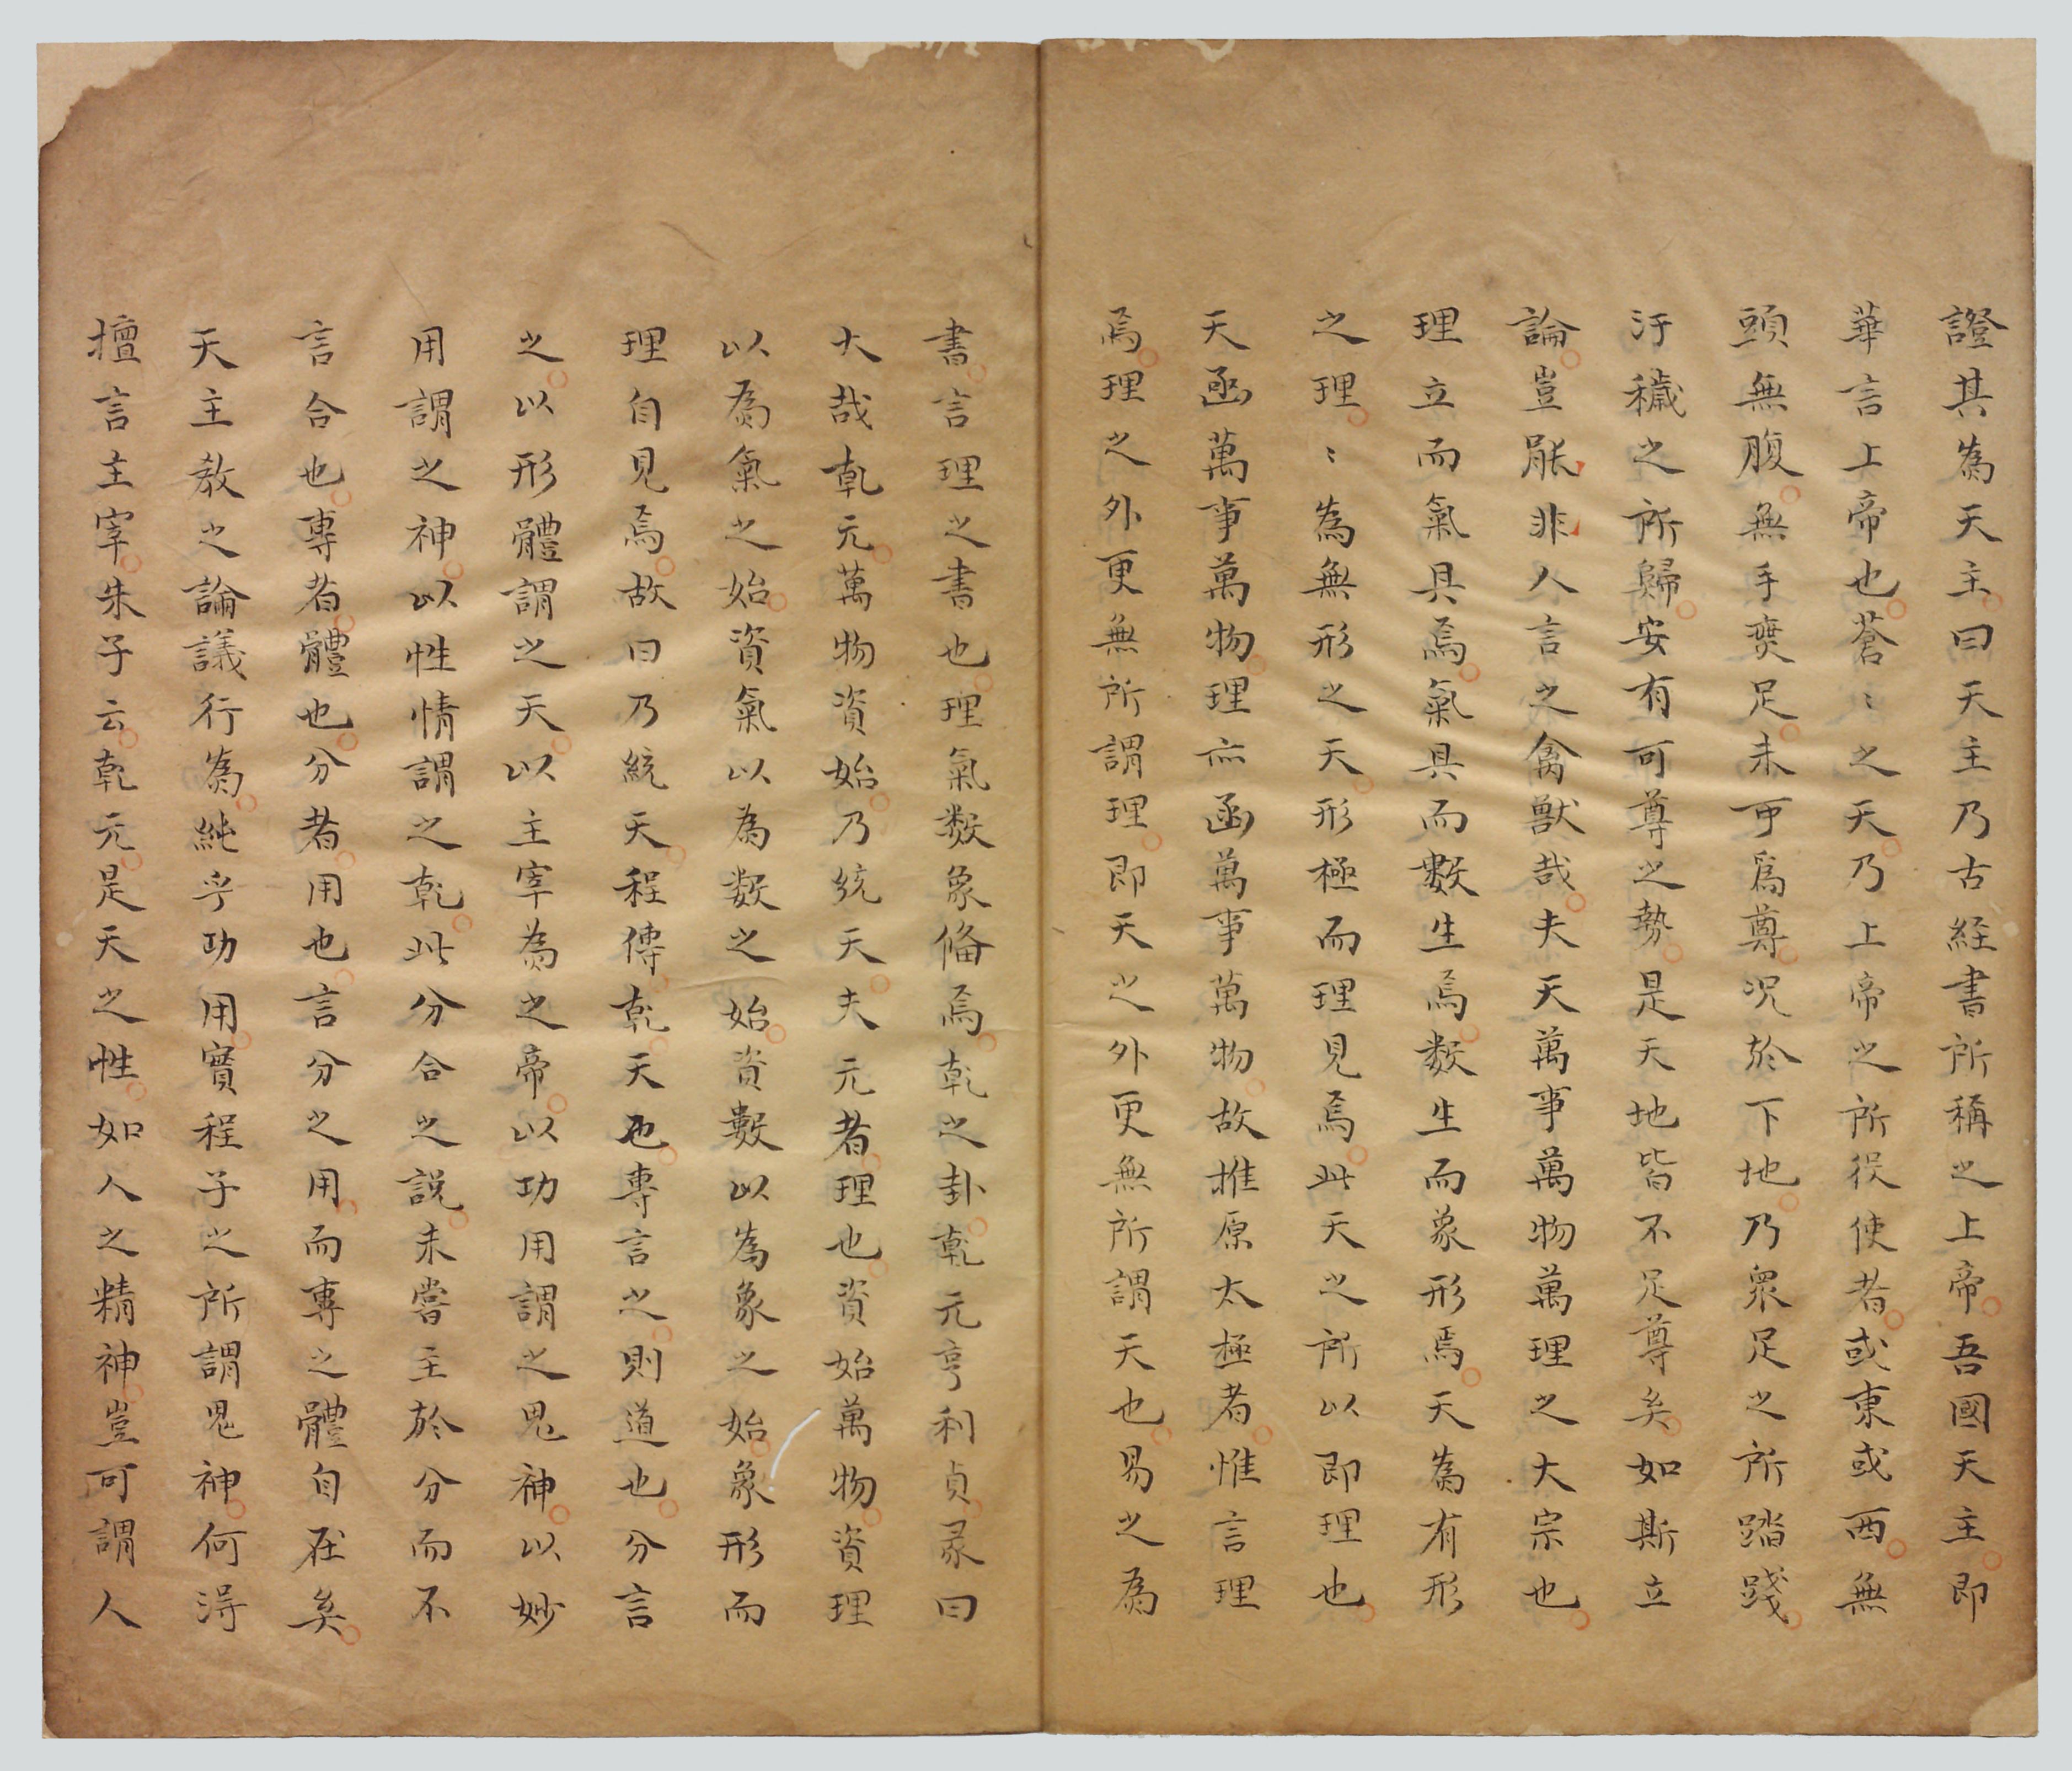 證其為天主曰天主乃古経書所稱之上帝吾國天主即
華言上帝也蒼〻之天乃上帝之所役使者或東或西無
頭無腹無手無足未可爲尊况於下地乃衆足之所踏踐
汙穢之所歸安有可尊之勢是天地皆不足尊矣如斯立
論豈能非人言之禽獸哉夫天萬事萬物萬理之大宗也
理立而氣具焉氣具而數生焉数生而象形焉天為有形
之理〻為無形之天形極而理見焉此天之所以即理也
天函萬事萬物理亦函萬事萬物故推原太極者惟言理
焉理之外更無所謂理即天之外更無所謂天也易之為
書言理之書也理氣数象俻焉乾之卦乾元亨利貞彖曰
大哉乾元萬物資始乃統天夫元者理也資始萬物資理
以為氣之始資氣以為数之始資數以為象之始象形而
理自見焉故曰乃統天程傳乾天也專言之則道也分言
之以形體謂之天以主宰為之帝以功用謂之鬼神以妙
用謂之神以性情謂之乾此分合之説未嘗主於分而不
言合也專者體也分者用也言分之用而專之體自在矣
天主教之論議行為純乎功用實程子之所謂鬼神何得
擅言主宰朱子云乾元是天之性如人之精神豈可謂人